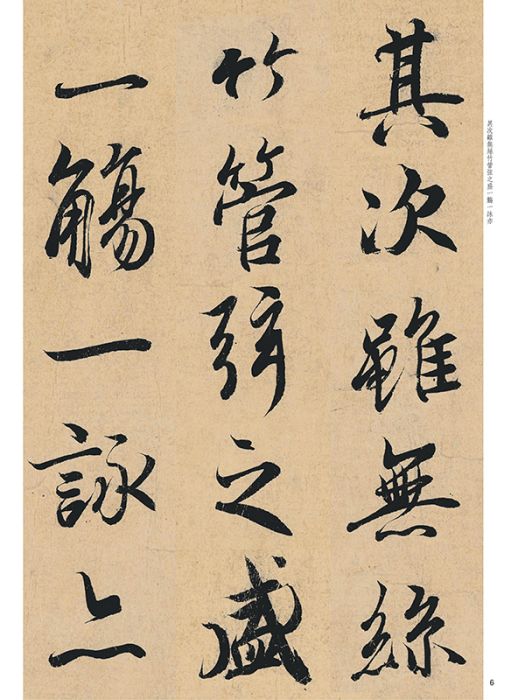 其次雖無絲
竹管弦之盛
一觴一詠亦
其次雖無絲竹管弦之盛一觴一詠亦
6